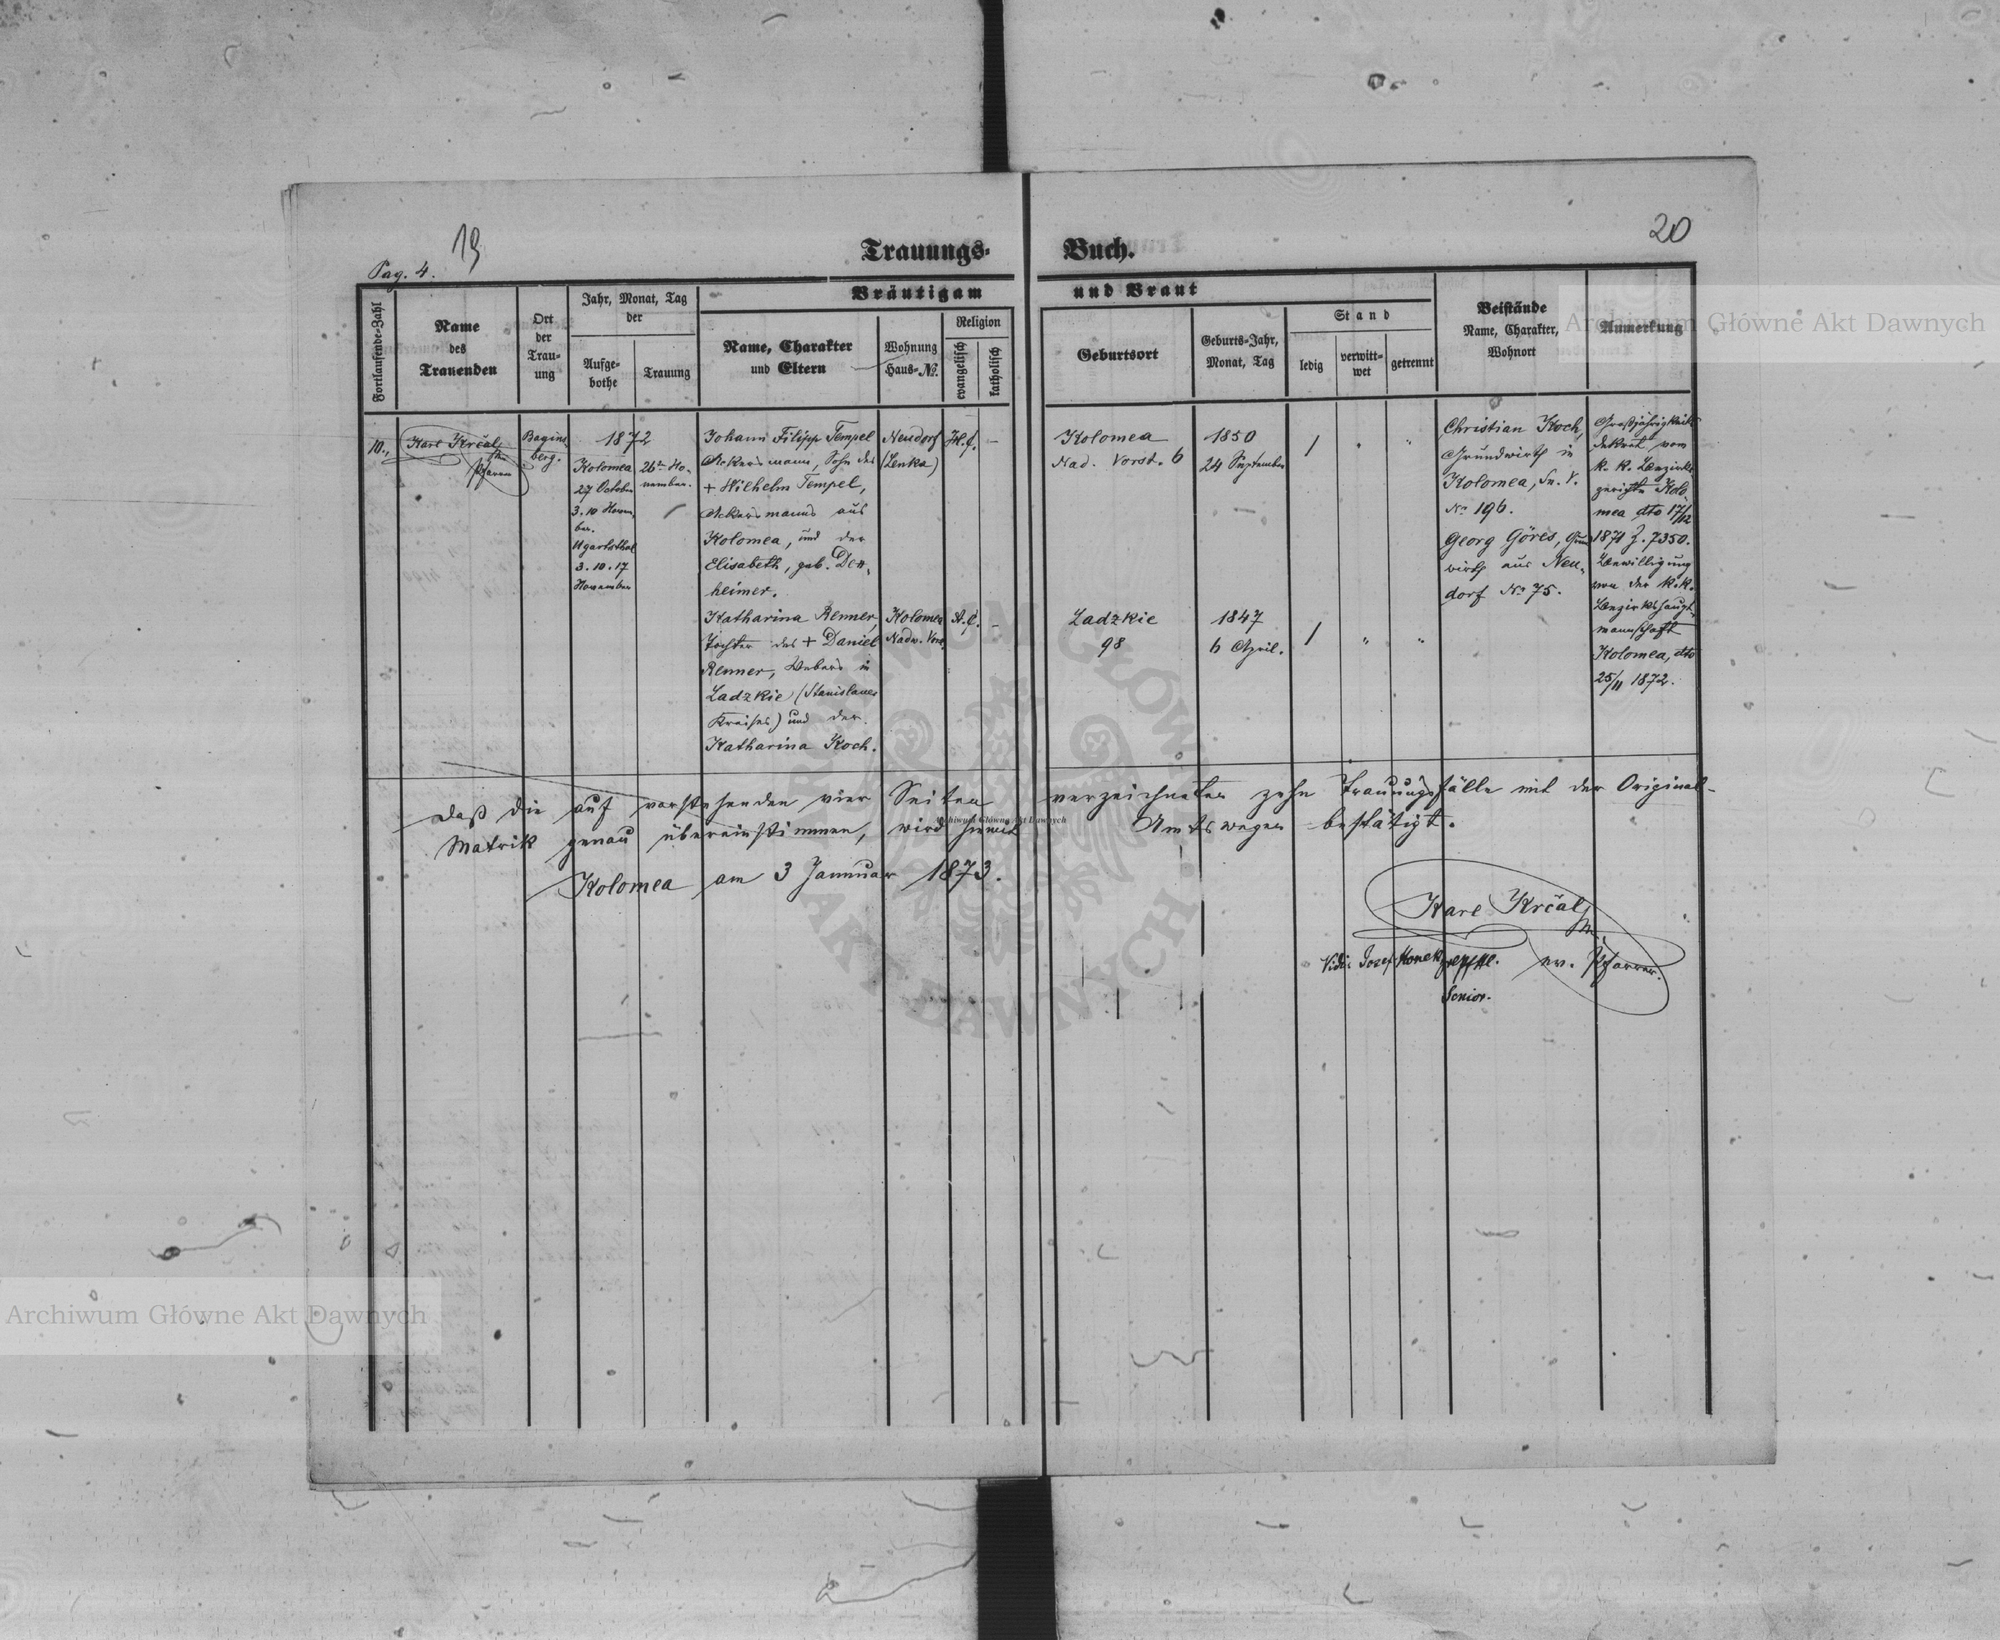 19
20
Pag. 4.
Trauungs-
Buch.
Fortlaufende-Zahl
Name
des
Trauenden
Ort
der
Trau-
ung
Jahr, Monat, Tag
der
Aufge-
bothe
Trauung
Bräutigam
und Braut
Name, Charakter
und Eltern
Wohnung
Haus-№.
Religion
evangelisch
katholisch
Geburtsort
Geburts-Jahr,
Monat, Tag
Stand
ledig
verwitt-
wet
getrennt
Beistände
Name, Charakter,
Wohnort
Anmerkung
10.,
Karl Krčal
Pfarrer
Bagins
berg.
1872
Kolomea
27 October
3. 10 Novem
ber.
Ugartsthal
3. 10. 17
November
26ten No-
vember.
Johann Filipp Tempel
Ackersmann, Sohn des
+ Wilhelm Tempel,
Ackersmanns aus
Kolomea, und der
Elisabeth, geb. Den
heimer.
Neudorf
(Lenka)
H.C.
–
Kolomea
Nad. Vorst. 6
1850
24 September
1
Christian Koch,
Grundwirth in
Kolomea, Sn. V.
No 196.
Georg Göres, Grund
wirth aus Neu-
dorf No 75.
Großjährigkeits
dekret vom
k. k. Bezirks
gerichte Kolo-
mea dto 17/12
1871 Z. 7350.
Bewilligung
von der k. k.
Bezirkshaupt
mannschaft
Kolomea, dto
25/11 1872.
Katharina Renner,
Tochter des + Daniel
Renner, Webers in
Ladzkie (Stanislauer
Kreises) und der
Katharina Koch.
Kolomea
Nadw. Vorst.
A.C.
–
Ladzkie
98
1847
6 April.
1
Daß die auf vorstehenden vier Seiten verzeichneten zehn Trauungsfälle mit der Original-
Matrik genau übereinstimmen, wird hiemit Amtswegen bestätigt.
Kolomea am 3 Januar 1873.
Karl Krčal
ev. Pfarrer.
Vidi: Josef
Senior.
Archiwum Główne Akt Dawnych
Archiwum Główne Akt Dawnych
Archiwum Główne Akt Dawnych
ARCHIWUM GŁÓWNE AKT DAWNYCH